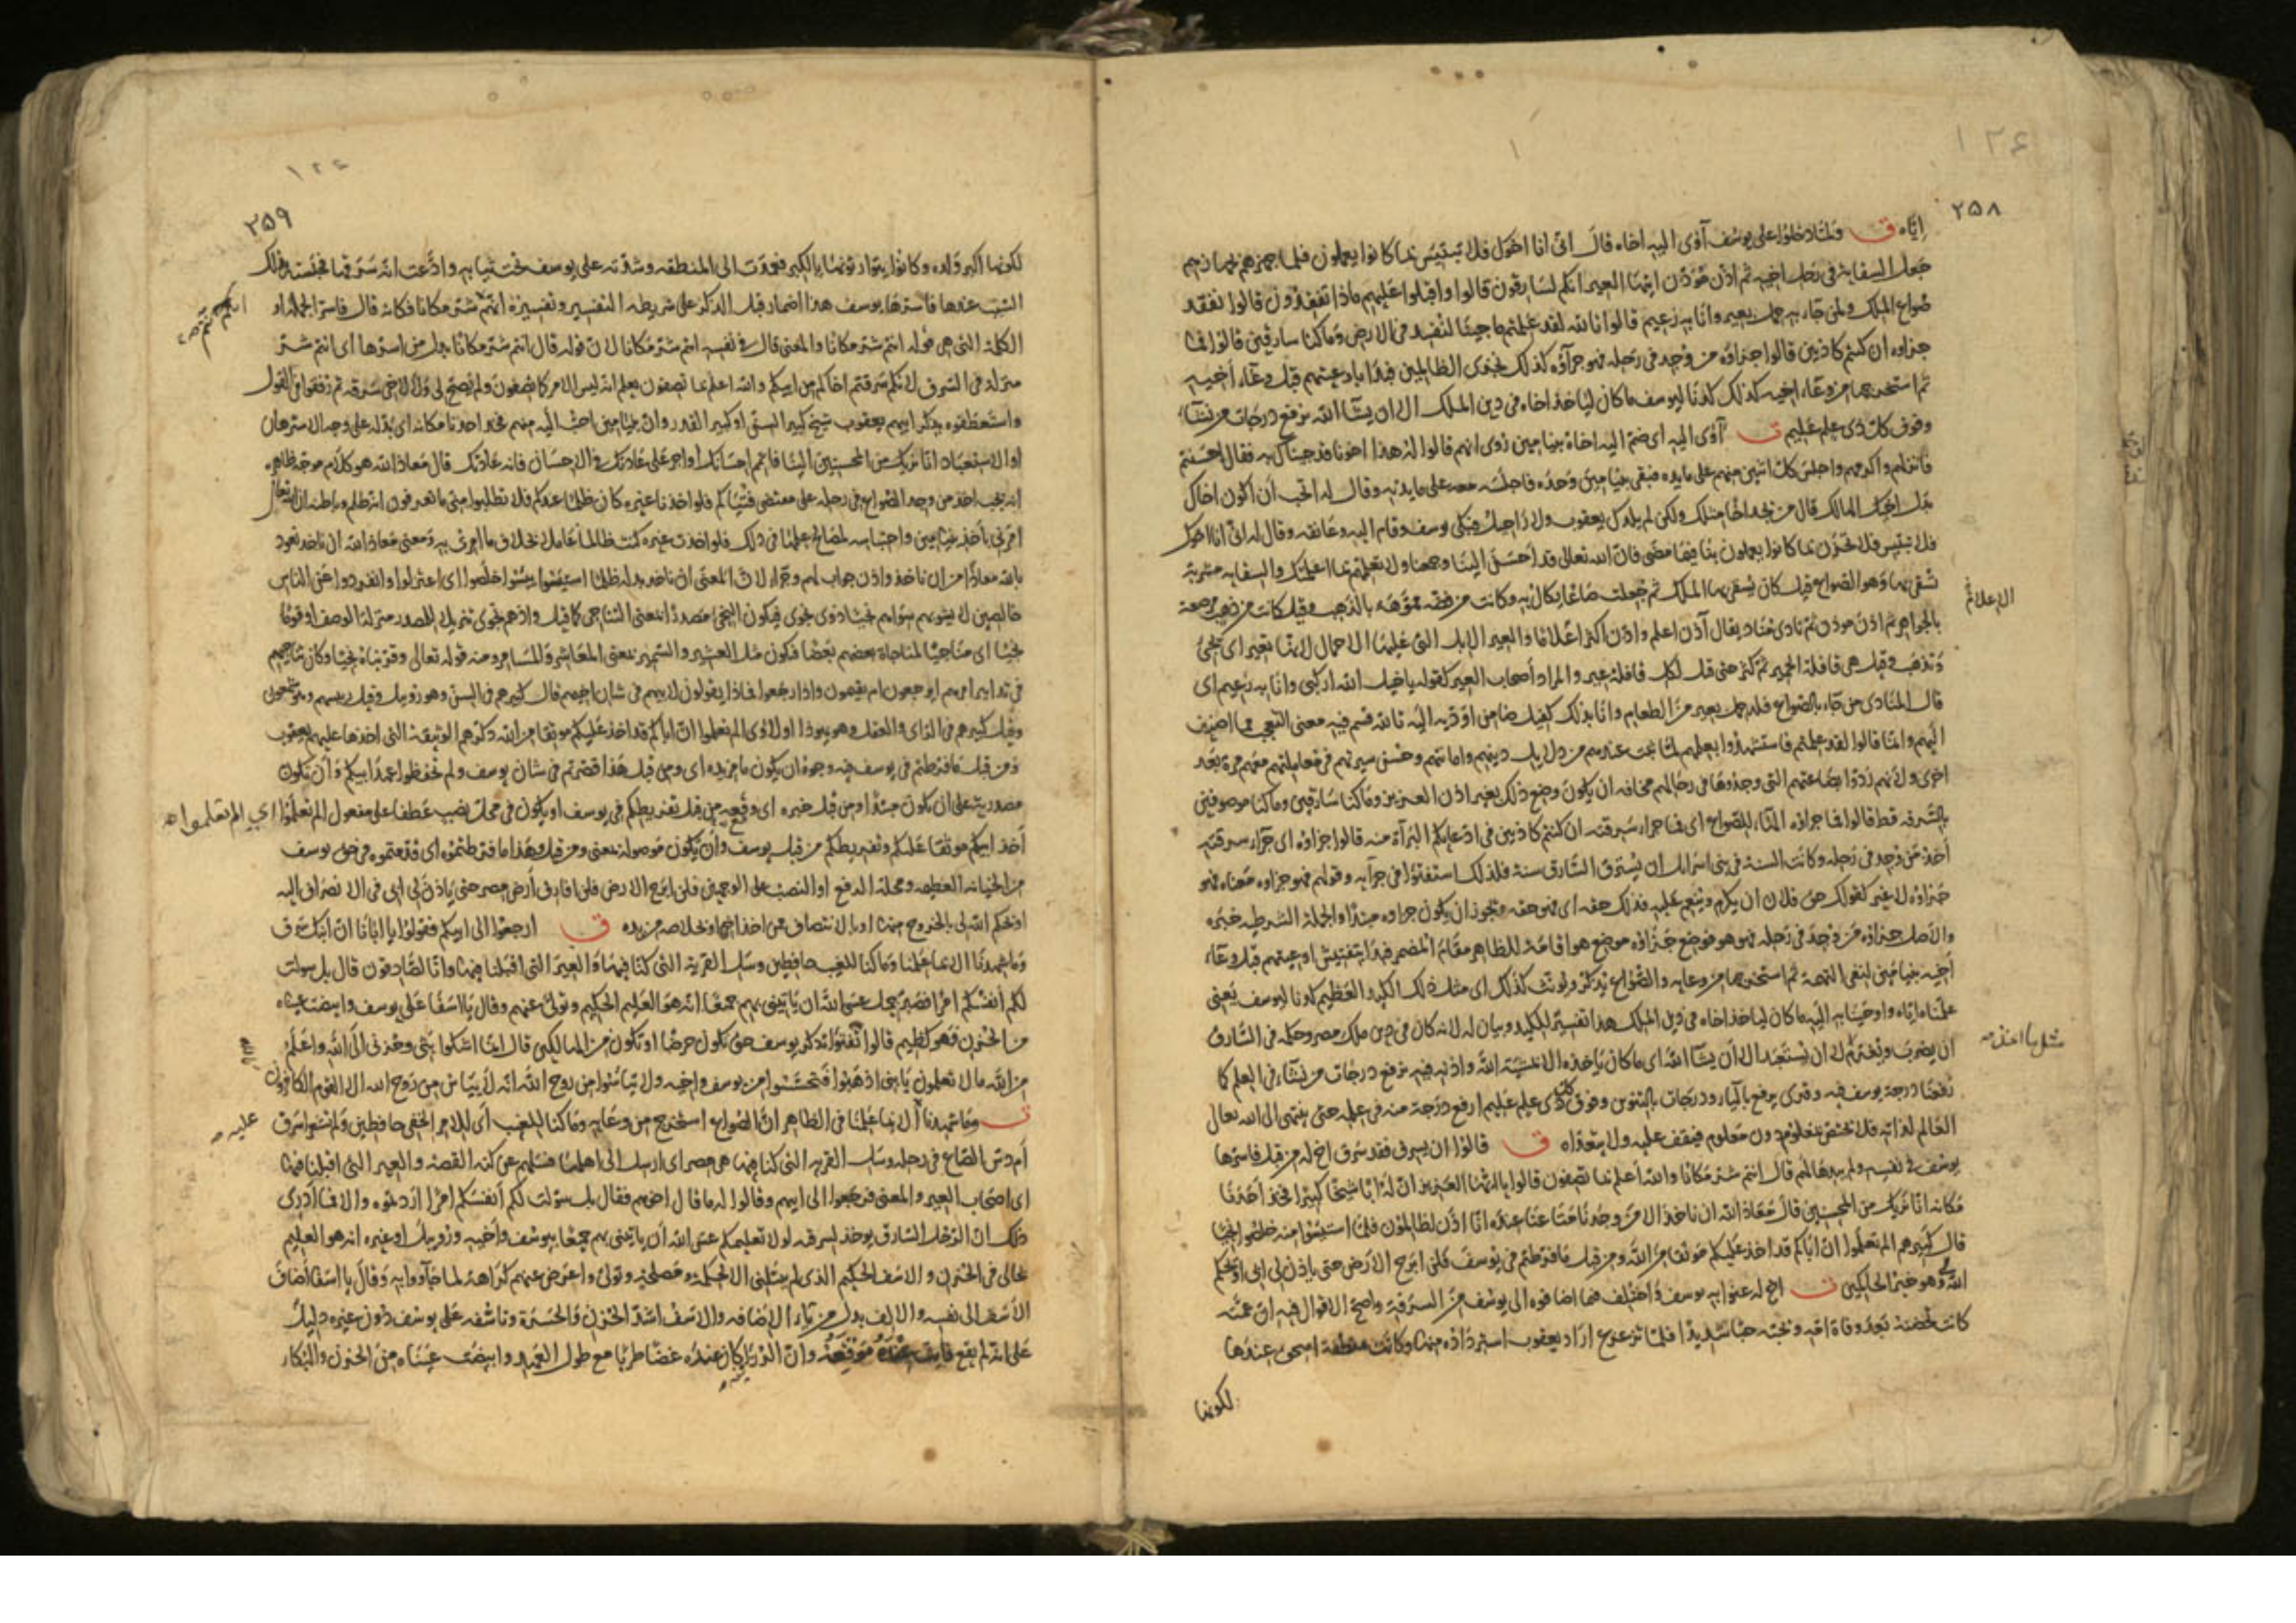 ٢٥٨
إيّاه ق ولمّا دخلوا على يوسف آوى إليه أخاه قال انى انا اخوك فلا تبتئس بما كانوا يعملون فلما جهزهم بجهازهم
جعل السقاية فى رحل اخيه ثم اذن مؤذن ايتها العير انكم لسارقون قالوا واقبلوا عليهم ماذا تفقدون قالوا نفقد
صواع الملك ولمن جاء به حمل بعير وانا به زعيم قالوا تالله لقد علمتم ما جينا لنفسد فى الارض وما كنا سارقين قالوا فما
جزاوه ان كنتم كاذبين قالوا جزاؤه من وجد فى رحله فهو جزاؤه كذلك نجزى الظالمين فبدا باوعيتهم قبل وعاء أخيه
ثم استخرجها من وعاء اخيه كذلك كدنا ليوسف ما كان لياخذ اخاه فى دين الملك الا ان يشاء الله نرفع درجات من نشاء
وفوق كل ذى علم عليم ت آوى اليه اى ضم اليه اخاه بنيامين روى انهم قالوا له هذا اخونا قد جيناك به فقال احسنتم
فانزلهم واكرمهم واجلس كل اثنين منهم على مايده فبقى بنيامين وحده فاجلسه معه على مايدته وقال له اتحب ان اكون اخاك
بدل اخيك الهالك قال من يجد اخا مثلك ولكن لم يلدك يعقوب ولا راحيل فبكى يوسف وقام اليه وعانقه وقال له انى انا اخوك
فلا تبتئس فلا تحزن بما كانوا يعملون بنا فيما مضى فان الله تعالى قد احسن الينا وجمعنا ولا تعلمهم بما اعلمتك والسقايه مشربة
يسقى بها وهو الصواع قيل كان يسقى بها الملك ثم جعلت صاعا يكال به وكانت من فضه مموهة بالذهب وقيل كانت من ذهب مرصعة
بالجواهر ثم اذن موذن ثم نادى مناد يقال آذن اعلم واذن اكثر اعلاما والعير الابل التى عليها الاحمال لانها تعير اى تجئ
وتذهب وقيل هى قافلة الحمير ثم كثر حتى قيل لكل قافلة عير والمراد أصحاب العير كقوله يا خيل الله اركبى وانا به زعيم اى
قال المنادى من جاء بالصواع فله حمل بعير من الطعام وانا بذلك كفيل ضامن اؤديه اليه تالله قسم فيه معنى التعجب مما اضيف
اليهم وانما قالوا لقد علمتم فاستشهدوا بعلمهم لما ثبت عندهم من دلايل دينهم وامانتهم وحسن سيرتهم فى معاملتهم معهم مرة بعد
اخرى ولانهم ردوا بضاعتهم التى وجدوها فى رحالهم مخافه ان يكون وضع ذلك بغير اذن العزيز وما كنا سارقين وما كنا موصوفين
بالسرقه قط قالوا فما جزاؤه الهاء للصواع اى فما جزاء سرقته ان كنتم كاذبين فى ادعايكم البرآة منه قالوا جزاؤه اى جزاء سرقته
أخذ من وجد فى رحله وكانت السنة فى بنى اسرايل ان يسترق السارق سنة فلذلك استفتوا فى جزآيه وقولهم فهو جزاوه معناه فهو
جزاؤه لا غير كقولك حق فلان ان يكرم وينعم عليه فذلك حقه اى فهو حقه ويجوز ان يكون جزاوه مبتدا والجملة الشرطيه خبره
والاصل جزاؤه من وجد فى رحله فهو هو فوضع جزاؤه موضع هو اقامة للظاهر مقام المضمر فبدا بتفتيش اوعيتهم قبل وعاء
أخيه بنيامين لنفى التهمة ثم استخرجها من وعايه والصواع يذكر ويونث كذلك اى مثل ذلك الكيد العظيم كدنا ليوسف يعنى
علمناه اياه واوحينا به اليه ما كان لياخذ اخاه فى دين الملك هذا تفسير للكيد وبيان له لانه كان فى دين ملك مصر وحكمه فى السارق
ان يضرب ويغرم لا ان يستعبد الا أن يشآ الله اى ما كان ياخذه الا بمشية الله واذنه فيه نرفع درجات من نشاء فى العلم كما
رفعنا درجة يوسف فيه وقرى يرفع بالياء ودرجات بالتنوين وفوق كل ذى علم عليم ارفع درجة منه فى علمه حتى ينتهى الى الله تعالى
العالم لذاته فلا يختص بمعلوم دون معلوم فيقف عليه ولا يتعداه ق قالوا ان يسرق فقد سرق اخ له من قبل فاسرها
يوسف فى نفسه ولم يبدها لهم قال انتم شر مكانا والله أعلم بما تصفون قالوا يا ايها العزيز ان له ابا شيخا كبيرا فخذ أحدنا
مكانه انا نراك من المحسنين قال معاذ الله ان ناخذ الا من وجدنا متاعنا عنده انا اذا لظالمون فلما استيئسوا منه خلصوا نجيا
قال كبيرهم الم تعلموا ان اباكم قد اخذ عليكم موثقا من الله ومن قبل ما فرطتم فى يوسف فلن ابرح الارض حتى ياذن لى ابى او يحكم
الله لى وهو خير الحاكمين ت اخ له عنوا به يوسف واختلف فيما اضافوه الى يوسف من السرقة واصح الاقوال فيه ان عمته
كانت تحضنه بعد وفاة امه وتحبه حبا شديدا فلما ترعرع اراد يعقوب استرداده منها وكانت منطقة اسحق عندها
لكونها
الاعلام
٢٥٩
لكونها اكبر ولده وكانوا يتوارثونها بالكبر فعمدت الى المنطقه وشدته على يوسف تحت ثيابه وادعت انه سرقها فحبسته بذلك
السبب عندها فاسرها يوسف هذا اضمار قبل الذكر على شريطه التفسير وتفسيره انتم شر مكانا فكانه قال فاسر الجملة او
الكلمة التى هى قوله انتم شر مكانا والمعنى قال فى نفسه انتم شر مكانا لان قوله قال انتم شر مكانا بدل من اسرها أى انتم شر
منزله فى السرق لانكم سرقتم اخاكم من ابيكم والله اعلم بما تصفون يعلم انه ليس الامر كما تصفون ولم يصح لى ولا لاخى سرقه ثم رفقوا فى القول
واستعطفوه بذكر ابيهم يعقوب شيخ كبير السن او كبير القدر وان بنيامين احب اليه منهم فخذ احدنا مكانه اى بدله على وجه الاسترهان
او الاستعباد انا نراك من المحسنين الينا فاتمم احسانك او اجر على عادتك فى الاحسان فانه عادتك قال معاذ الله هو كلام موجه ظاهره
انه يجب اخذ من وجد الصواع فى رحله على مقتضى فتياكم فلو اخذنا غيره كان ظلما عندكم فلا تطلبوا منى ما تعرفون انه ظلم وباطنه ان الله تعالى
امرنى بأخذ بنيامين واحتباسه لمصالح علمها فى ذلك فلو اخذت غيره كنت ظالما عاملا بخلاف ما امرنى به ومعنى معاذ الله ان ناخذ نعوذ
بالله معاذا من ان ناخذ واذن جواب لهم وجزاء لان المعنى ان ناخذ بدله ظلمنا استيئسوا يئسوا خلصوا اى اعتزلوا وانفردوا عن الناس
خالصين لا يشوبهم سواهم نجيا ذوى نجوى فيكون النجى مصدرا بمعنى التناجى كما قيل واذ هم نجوى تنزيلا للمصدر منزلة الوصف او قوما
نجيا اى متناجيا لمناجاة بعضهم بعضا فيكون مثل العشير والسمير بمعنى المعاشر والمسامر ومنه قوله تعالى وقربناه نجيا وكان تناجيهم
فى تدابير امرهم ايرجعون ام يقيمون واذا رجعوا فماذا يقولون لابيهم فى شان اخيهم قال كبيرهم فى السن وهو روبيل وقيل رييسهم وهو شمعون
وقيل كبيرهم فى الراى والعقل وهو يهوذا او لاوى الم تعلموا ان اباكم قد اخذ عليكم موثقا من الله ذكرهم الوثيقة التى اخذها عليهم يعقوب
ومن قبل ما فرطتم فى يوسف فيه وجوه ان يكون ما مزيده اى ومن قبل هذا قصرتم فى شان يوسف ولم تحفظوا عهد ابيكم وأن تكون
مصدرية على ان يكون مبتدا ومن قبل خبره اى وقع من قبل تفريطكم فى يوسف او يكون فى محل نصب عطفا على مفعول الم تعلموا اي الم تعلموا
أخذ ابيكم موثقا عليكم وتفريطكم من قبل يوسف وأن يكون موصولة بمعنى ومن قبل هذا ما فرطتموه اى قدمتموه فى حق يوسف
من الخيانه العظيمه ومحله الرفع او النصب على الوجهين فلن ابرح الارض فلن افارق أرض مصر حتى ياذن لى ابى فى الانصراف اليه
او يحكم الله لى بالخروج منها او بالانتصاف ممن اخذ اخى او بخلاصه من يده ق ارجعوا الى ابيكم فقولوا يا ابانا ان ابنك سرق
وما شهدنا الا بما علمنا وما كنا للغيب حافظين وسئل القرية التى كنا فيها والعير التى اقبلنا فيها وانا لصادقون قال بل سولت
لكم أنفسكم امرا فصبر جميل عسى الله ان ياتينى بهم جميعا انه هو العليم الحكيم وتولى عنهم وقال يا اسفا على يوسف وابيضت عيناه
من الحزن فهو كظيم قالوا تفتؤا تذكر يوسف حتى تكون حرضا او تكون من الهالكين قال انما اشكوا بثى وحزنى الى الله واعلم
من الله ما لا تعلمون يا بنى اذهبوا فتحسسوا من يوسف واخيه ولا تيأسوا من روح الله انه لا ييأس من روح الله الا القوم الكافرون
ت وما شهدنا الا بما علمنا فى الظاهر ان الصواع استخرج من وعايه وما كنا للغيب أى للامر الخفى حافظين ولم نشعر اسرق
أم دس الصاع فى رحله وسئل القريه التى كنا فيها هى مصر اى ارسل الى اهلها فسلهم عن كنه القصة والعير التى اقبلنا فيها
اى اصحاب العير والمعنى فرجعوا الى ابيهم وقالوا له ما قال اخوهم فقال بل سولت لكم أنفسكم امرا اردتموه والا فما ادرى
ذلك الرجل ان السارق يوخذ بسرقه لولا تعليمكم عسى الله أن ياتينى بهم جميعا بيوسف وأخيه وروبيل او غيره انه هو العليم
بحالى فى الحزن والاسف الحكيم الذى لم يبتلنى الا لحكمة ومصلحة وتولى واعرض عنهم كراهة لما جآؤوا به وقال يا اسفا أضاف
الأسف الى نفسه والالف بدل من ياء الاضافه والاسف اشد الحزن والحسرة وتاسفه على يوسف دون غيره دليل
على انه لم يقع فايت عنده موقعه وان الرزء كان عنده غضا طريا مع طول العهد وابيضت عيناه من الحزن والبكاء
عليه